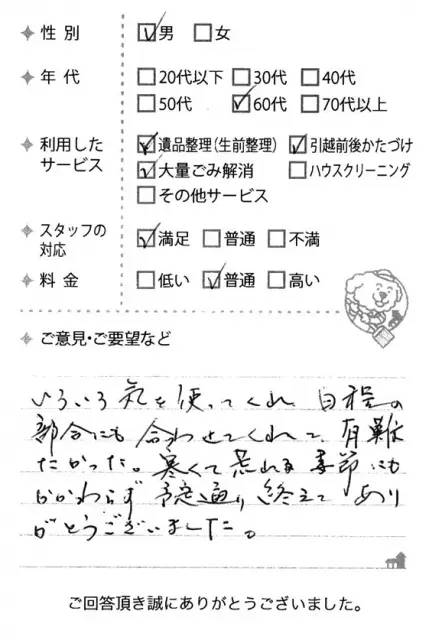 性別 ☑男 ☐女
年代 ☐20代以下 ☐30代 ☐40代
☐50代 ☑60代 ☐70代以上
利用したサービス ☑遺品整理(生前整理) ☑引越前後かたづけ
☑大量ごみ解消 ☐ハウスクリーニング
☐その他サービス
スタッフの対応 ☑満足 ☐普通 ☐不満
料金 ☐低い ☑普通 ☐高い
ご意見・ご要望など
いろいろ気を使ってくれ 日程の
都合にも合わせてくれて、有難
たかった。寒くて荒れる季節にも
かかわらず予定通り終えて あり
がとうございました。
ご回答頂き誠にありがとうございました。